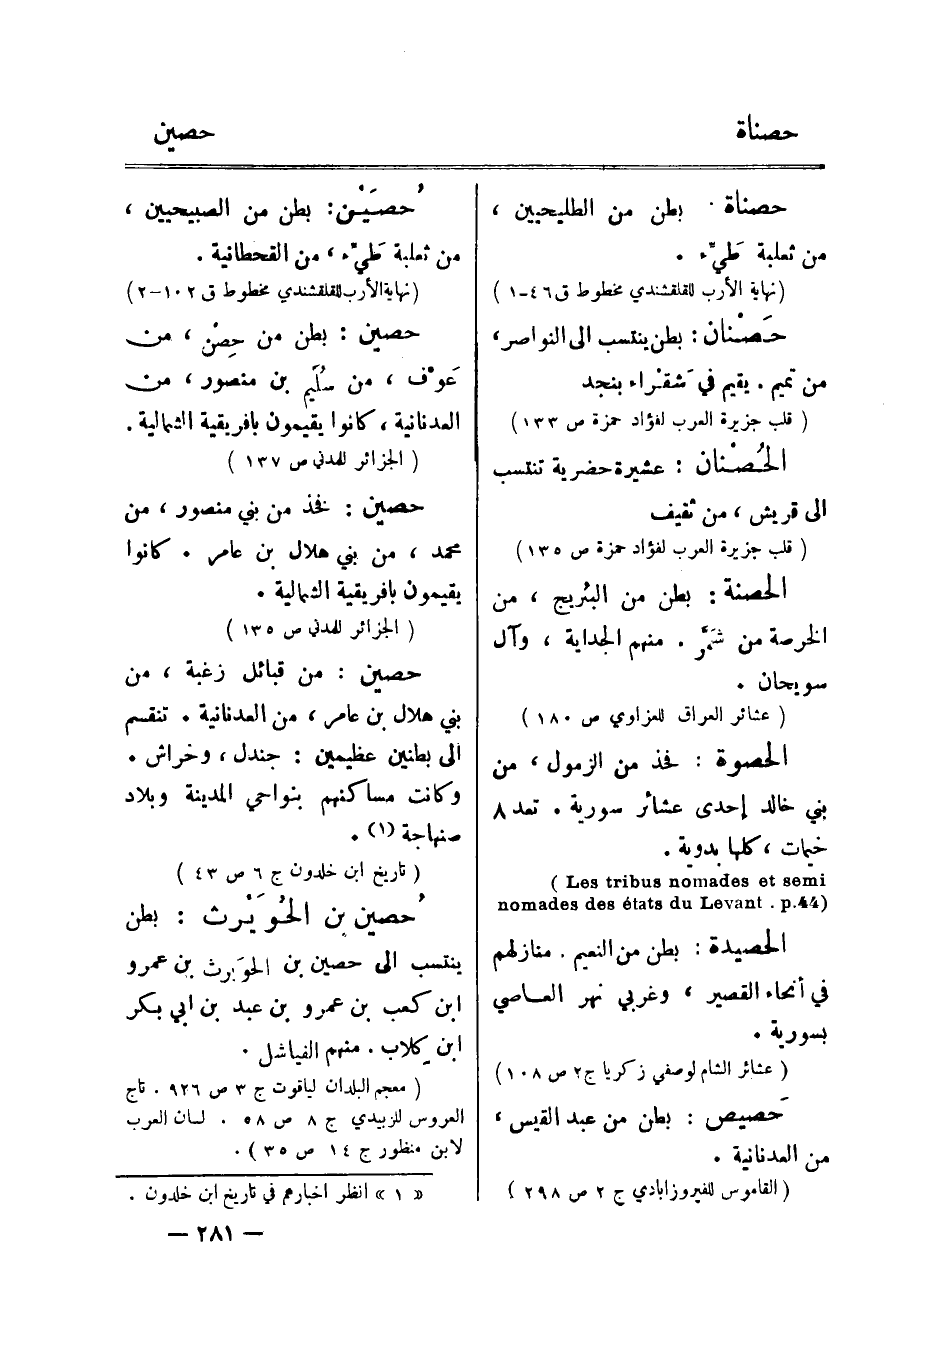 حصناة
حصين
حصناة . بطن من الطليحيين ،
من ثعلبة طَيِّء .
(نهاية الأرب للقلقشندي مخطوط ق٤٦-١ )
حَصْنان : بطن ينتسب الى النواصر ،
من تميم . يقيم في شَقْراء بنجد
( قلب جزيرة العرب لفؤاد حمزة ص ١٣٣ )
الحُصْنان : عشيرة حضرية تنتسب
الى قريش ، من ثقيف
( قلب جزيرة العرب لفؤاد حمزة ص ١٣٥ )
الحصنة : بطن من البُريج ، من
الخرصة من شَمَّر . منهم الجداية ، وآل
سويحان .
( عشائر العراق للعزاوي ص ١٨٠ )
الحصوة : فخذ من الزمول ، من
بني خالد إحدى عشائر سورية . تعد ٨
خيمات ، كلها بدوية .
( Les tribus nomades et semi
nomades des états du Levant . p.44)
الحصيدة : بطن من النعيم . منازلهم
في أنحاء القصير ، وغربي نهر العاصي
بسورية .
( عشائر الشام لوصفي زكريا ج٢ ص ١٠٨)
حَصيص : بطن من عبد القيس ،
من العدنانية .
( القاموس للفيروزابادي ج ٢ ص ٢٩٨ )
حُصَيْن : بطن من الصبيحيين ،
من ثعلبة طَيِّء ، من القحطانية .
(نهاية الأرب للقلقشندي مخطوط ق ١٠٢-٢)
حصين : بطن من حِصْن ، من
عَوْف ، من سُلَيم بن منصور ، من
العدنانية ، كانوا يقيمون بافريقية الشمالية .
( الجزائر للمدني ص ١٣٧ )
حصين : فخذ من بني منصور ، من
محمد ، من بني هلال بن عامر . كانوا
يقيمون بافريقية الشمالية .
( الجزائر للمدني ص ١٣٥ )
حصين : من قبائل زغبة ، من
بني هلال بن عامر ، من العدنانية . تنقسم
الى بطنين عظيمين : جندل ، وخراش .
وكانت مساكنهم بنواحي المدينة وبلاد
صنهاجة (١) .
( تاريخ ابن خلدون ج ٦ ص ٤٣ )
حُصين بن الحُوَيْرث : بطن
ينتسب الى حصين بن الحويرث بن عمرو
ابن كعب بن عمرو بن عبد بن ابي بكر
ابن كلاب . منهم الفياشل .
( معجم البلدان لياقوت ج ٣ ص ٩٢٦ . تاج
العروس للزبيدي ج ٨ ص ٥٨ . لسان العرب
لابن منظور ج ١٤ ص ٣٥ ) .
« ١ » انظر اخبارهم في تاريخ ابن خلدون .
— ٢٨١ —